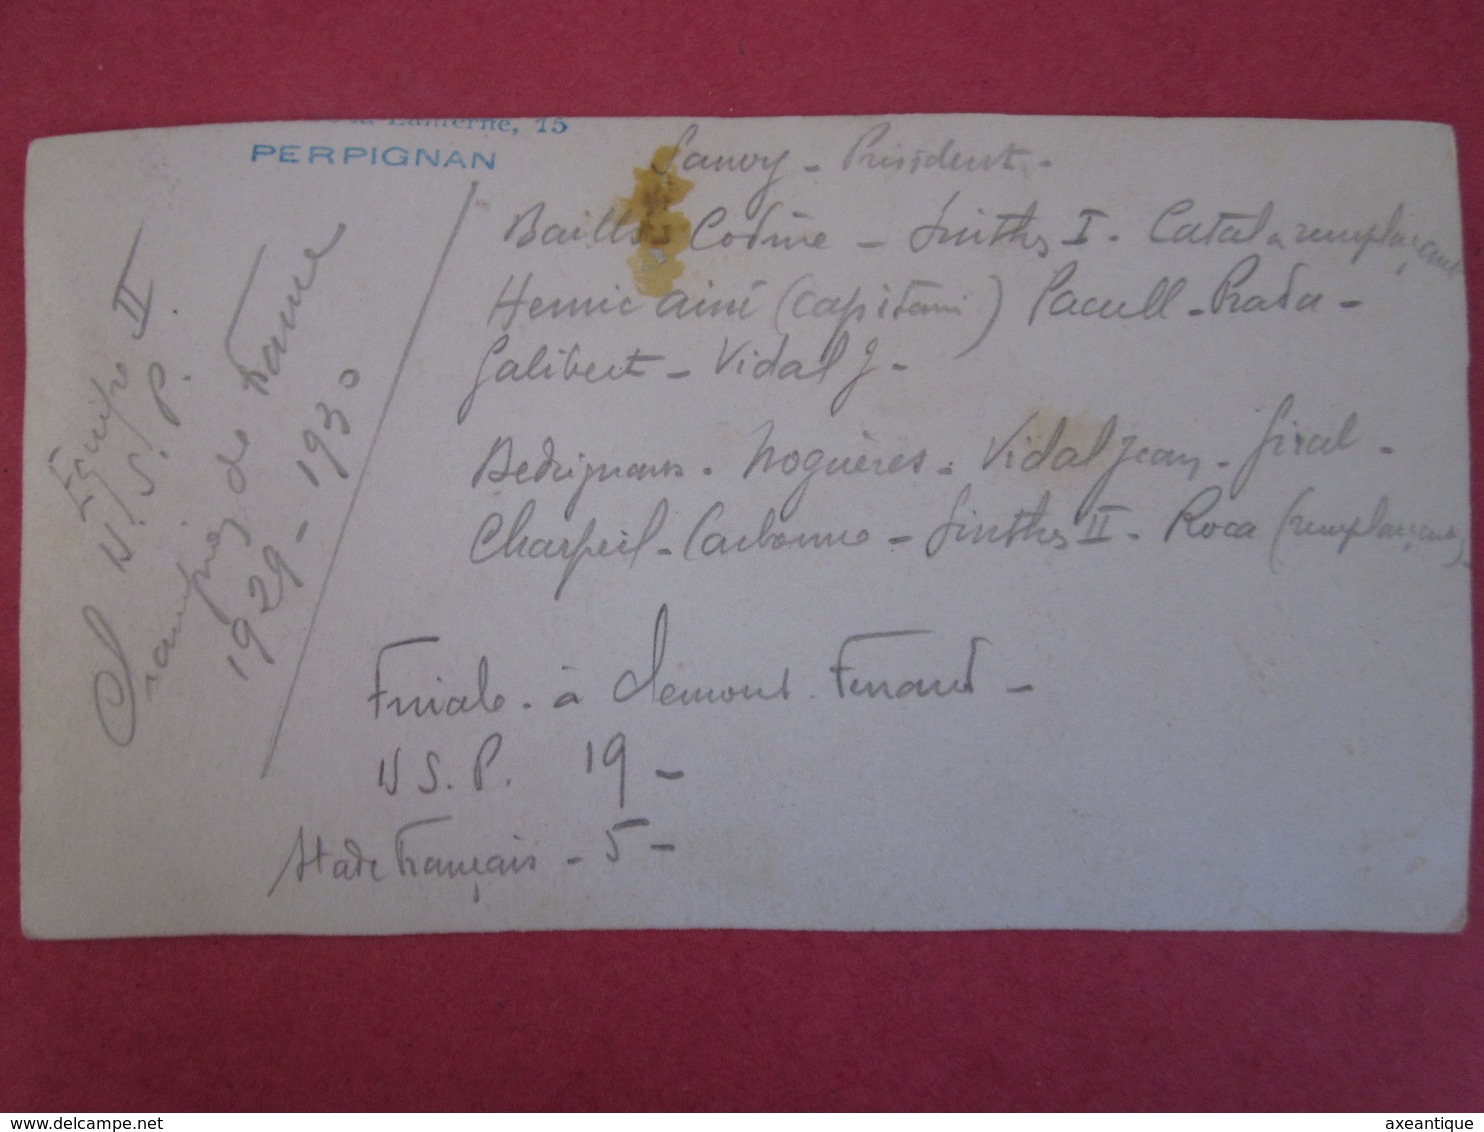 la Lanterne, 15
PERPIGNAN
Equipe II
U.S.P.
Champes de France
1929-1930
Sanoy - Président -
Baills - Codine - Sinthes I - Catala remplaçant
Hernie ainé (capitaine) Pacull - Prada -
Galibert - Vidal J -
Bedrignans - Noguères - Vidal Jean - Giral -
Charpeil - Carbonne - Sinthes II - Roca (remplaçant)
Finale - à Clermont - Ferrand -
U S. P. 19 -
Stade Français - 5 -
axeantique